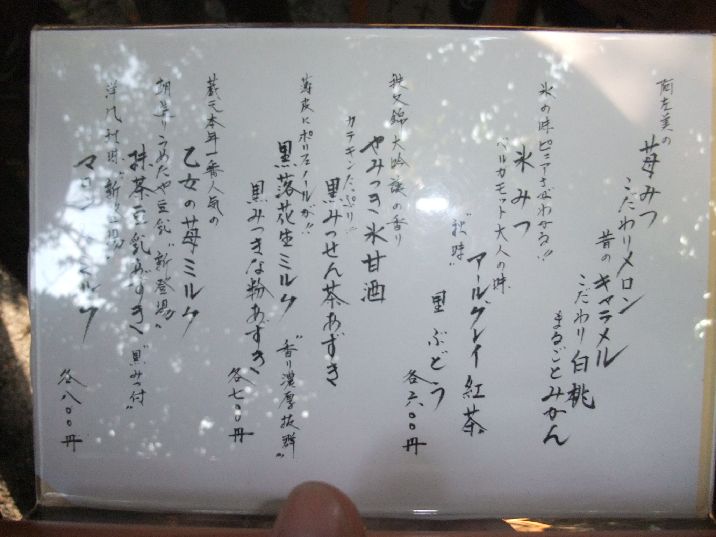 阿左美の
苺みつ
こだわりメロン
昔のキャラメル
こだわり白桃
まるごとみかん
氷の味ピュアさがわかる!!
氷みつ
ベルガモット大人の味
アールグレイ紅茶
"秋味"
黒ぶどう
各六〇〇円
秩父錦大吟醸の香り
やみつき氷甘酒
カテキンたっぷり
黒みつせん茶あずき
薄皮にポリフェノールが!!
黒落花生ミルク
"香り濃厚抜群"
黒みつきな粉あずき
各七〇〇円
蔵元本年一番人気の
乙女の苺ミルク
"新登場"
抹茶豆乳あずき
"黒みつ付"
各八〇〇円